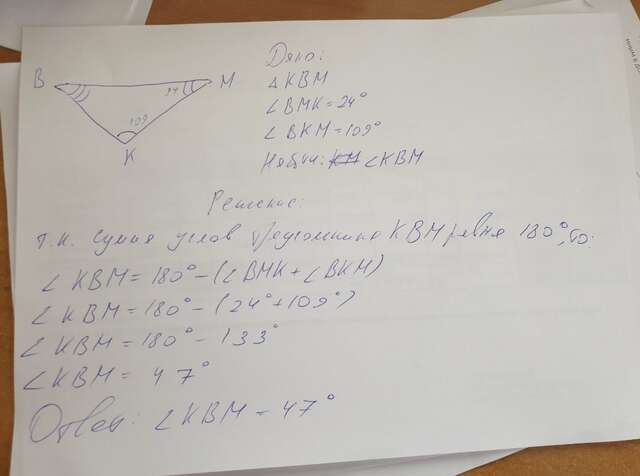 B
M
24
109
K
Дано:
△KBM
∠BMK=24°
∠BKM=109°
Найти: KM ∠KBM
Решение:
т.к. сумма углов треугольника KBM равна 180°, то:
∠KBM=180°-(∠BMK+∠BKM)
∠KBM=180°-(24°+109°)
∠KBM=180°-133°
∠KBM=47°
Ответ: ∠KBM=47°